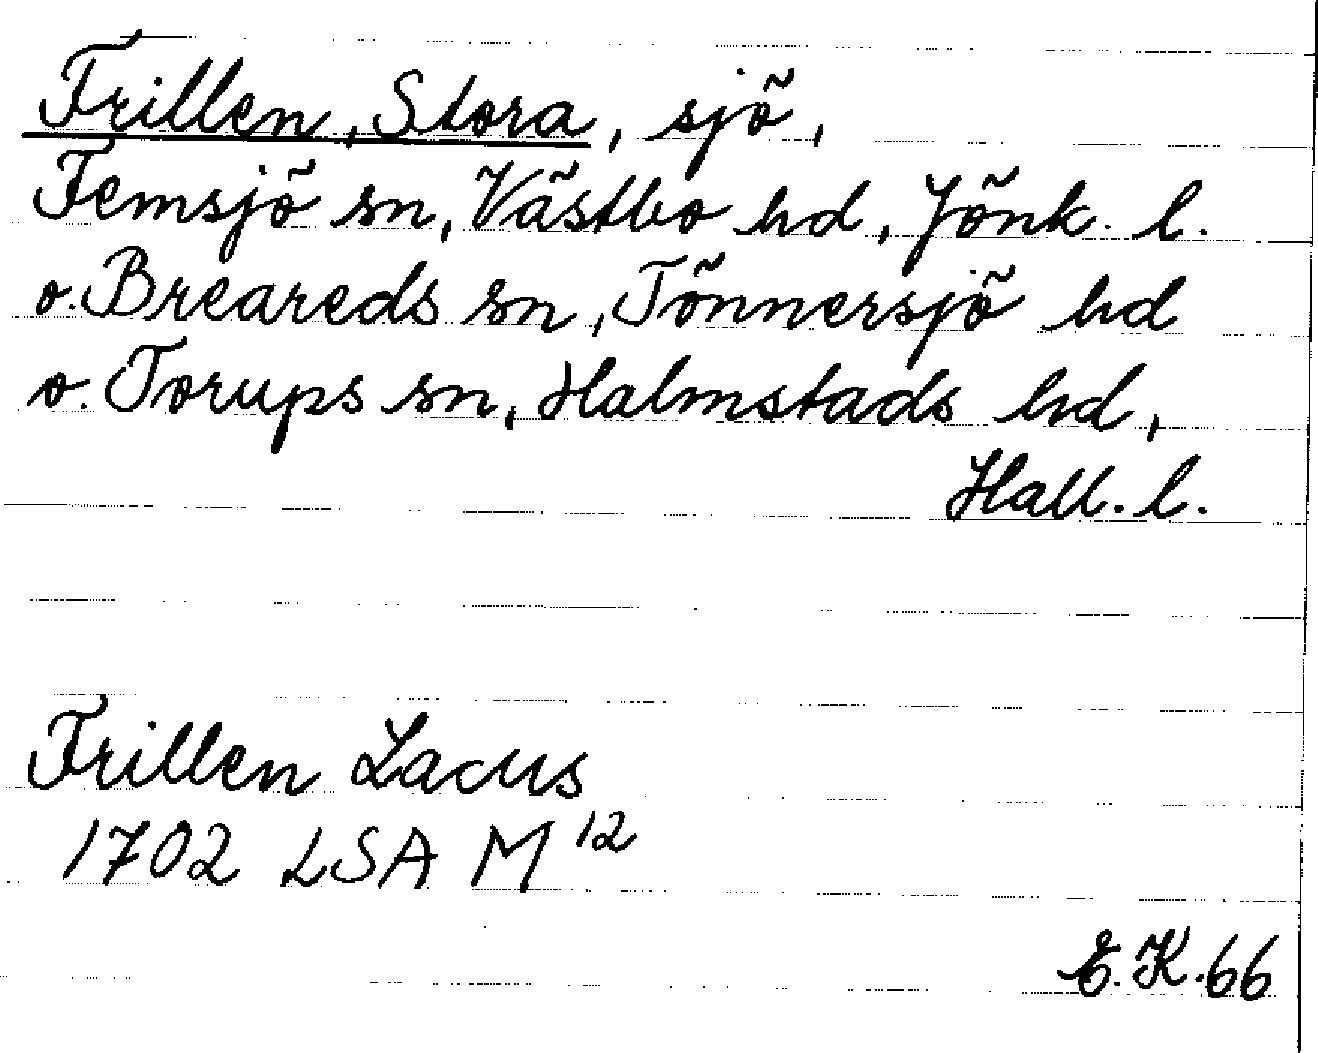 Frillen, Stora, sjö,
Femsjö sn, Västbo hd, Jönk. l.
o. Breareds sn, Tönnersjö hd
o. Torups sn, Halmstads hd,
Hall. l.
Frillen Lacus
1702 LSA M¹²
E.K.66